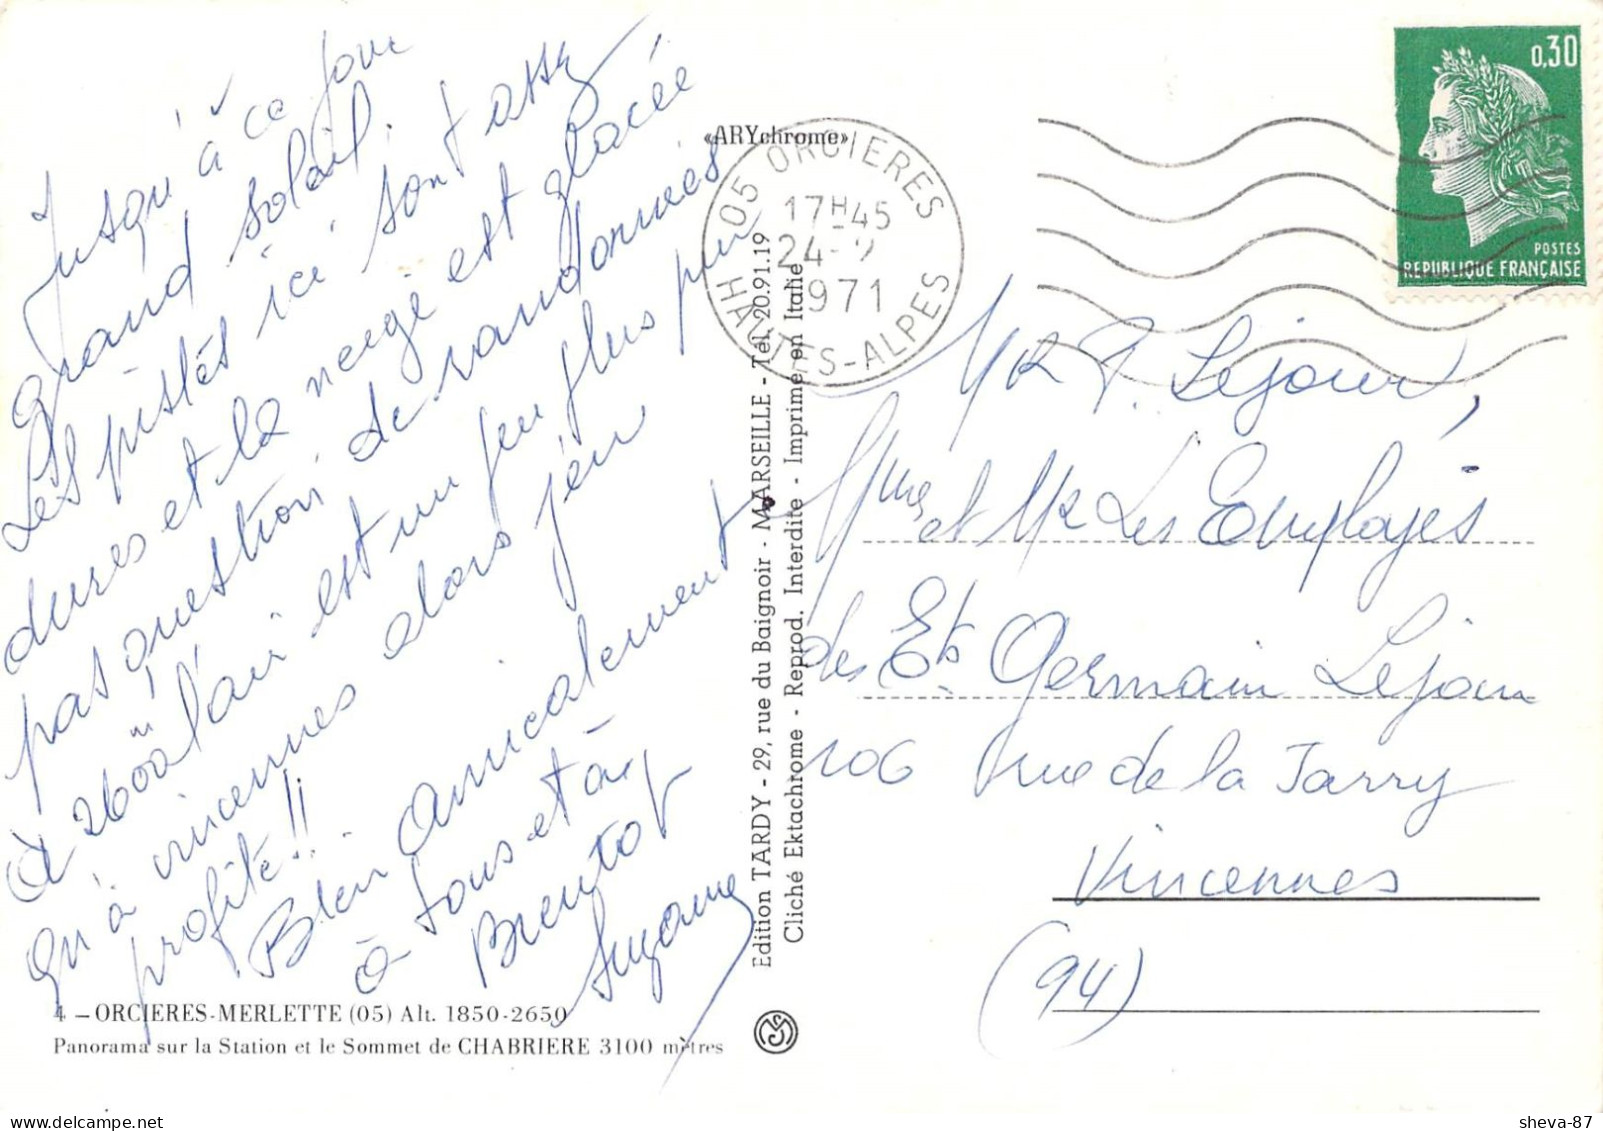 Jusqu'à ce jour
grand soleil.
Les pistes ici sont assez
dures et la neige est glacée
pas question de randonnées
à 2600m l'air est un peu plus pur
qu'à vincennes alors j'en
profite!!
Bien Amicalement
à tous et à
Bientot
Suzanne
4 - ORCIERES-MERLETTE (05) Alt. 1850-2650
Panorama sur la Station et le Sommet de CHABRIERE 3100 mètres
«ARYchrome»
Edition TARDY - 29, rue du Baignoir - MARSEILLE - Tél. 20.91.19
Cliché Ektachrome - Reprod. Interdite - Imprimé en Italie
05 ORCIERES
17H45
24-
1971
HAUTES-ALPES
0,30
POSTES
REPUBLIQUE FRANÇAISE
MR P. Lejour,
Mmes et MR Les Employés
des Ets Germain Lejour
106 Rue de la Jarry
Vincennes
(94)
sheva-87